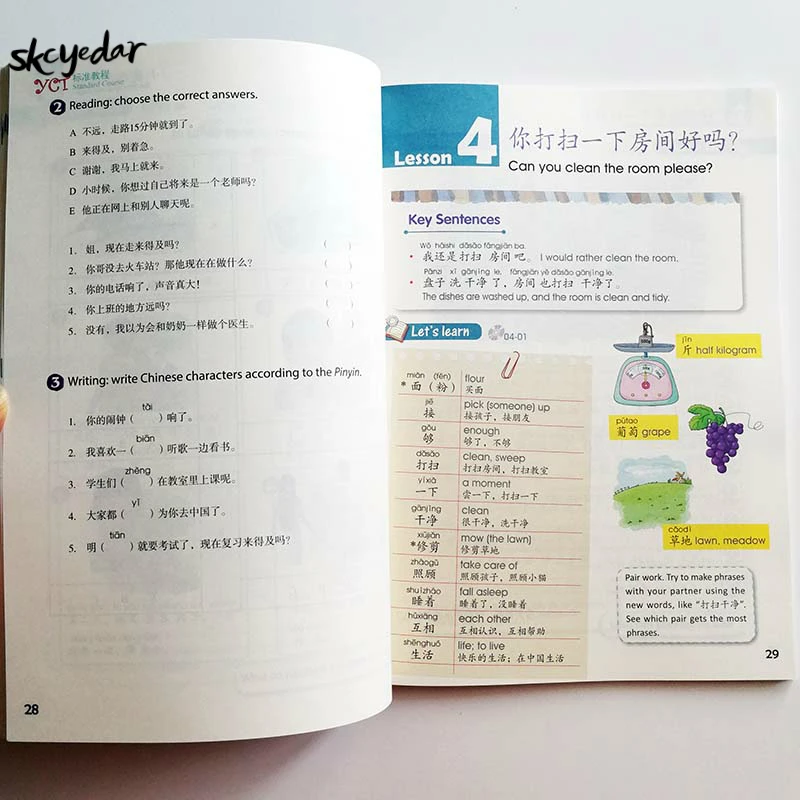 skcyedar
YCT 标准教程
Standard Course
2 Reading: choose the correct answers.
A 不远，走路15分钟就到了。
B 来得及，别着急。
C 谢谢，我马上就来。
D 小时候，你想过自己将来是一个老师吗？
E 他正在网上和别人聊天呢。
1. 姐，现在走来得及吗？ （ ）
2. 你哥没去火车站？那他现在在做什么？ （ ）
3. 你的电话响了，声音真大！ （ ）
4. 你上班的地方远吗？ （ ）
5. 没有，我以为会和奶奶一样做个医生。 （ ）
3 Writing: write Chinese characters according to the Pinyin.
tāi
1. 你的闹钟（ ）响了。
biān
2. 我喜欢一（ ）听歌一边看书。
zhèng
3. 学生们（ ）在教室里上课呢。
yǐ
4. 大家都（ ）为你去中国了。
tiān
5. 明（ ）就要考试了，现在复习来得及吗？
28
Lesson 4
你打扫一下房间好吗？
Can you clean the room please?
Key Sentences
Wǒ háishi dǎsǎo fángjiān ba.
• 我还是打扫 房间 吧。 I would rather clean the room.
Pánzi xǐ gānjìng le, fángjiān yě dǎsǎo gānjìng le.
• 盘子 洗 干净 了，房间 也打扫 干净了。
The dishes are washed up, and the room is clean and tidy.
Let's learn 04-01
miàn (fěn)
*面（粉） flour
买面
jiē
接 pick (someone) up
接孩子，接朋友
gòu
够 enough
够了，不够
dǎsǎo
打扫 clean, sweep
打扫房间，打扫教室
yíxià
一下 a moment
尝一下，打扫一下
gānjìng
干净 clean
很干净，洗干净
xiūjiǎn
*修剪 mow (the lawn)
修剪草地
zhàogù
照顾 take care of
照顾孩子，照顾小猫
shuìzháo
睡着 fall asleep
睡着了，没睡着
hùxiāng
互相 each other
互相认识，互相帮助
shēnghuó
生活 life; to live
快乐的生活；在中国生活
jīn
斤 half kilogram
pútao
葡萄 grape
cǎodì
草地 lawn, meadow
Pair work. Try to make phrases
with your partner using the
new words, like “打扫干净”.
See which pair gets the most
phrases.
29